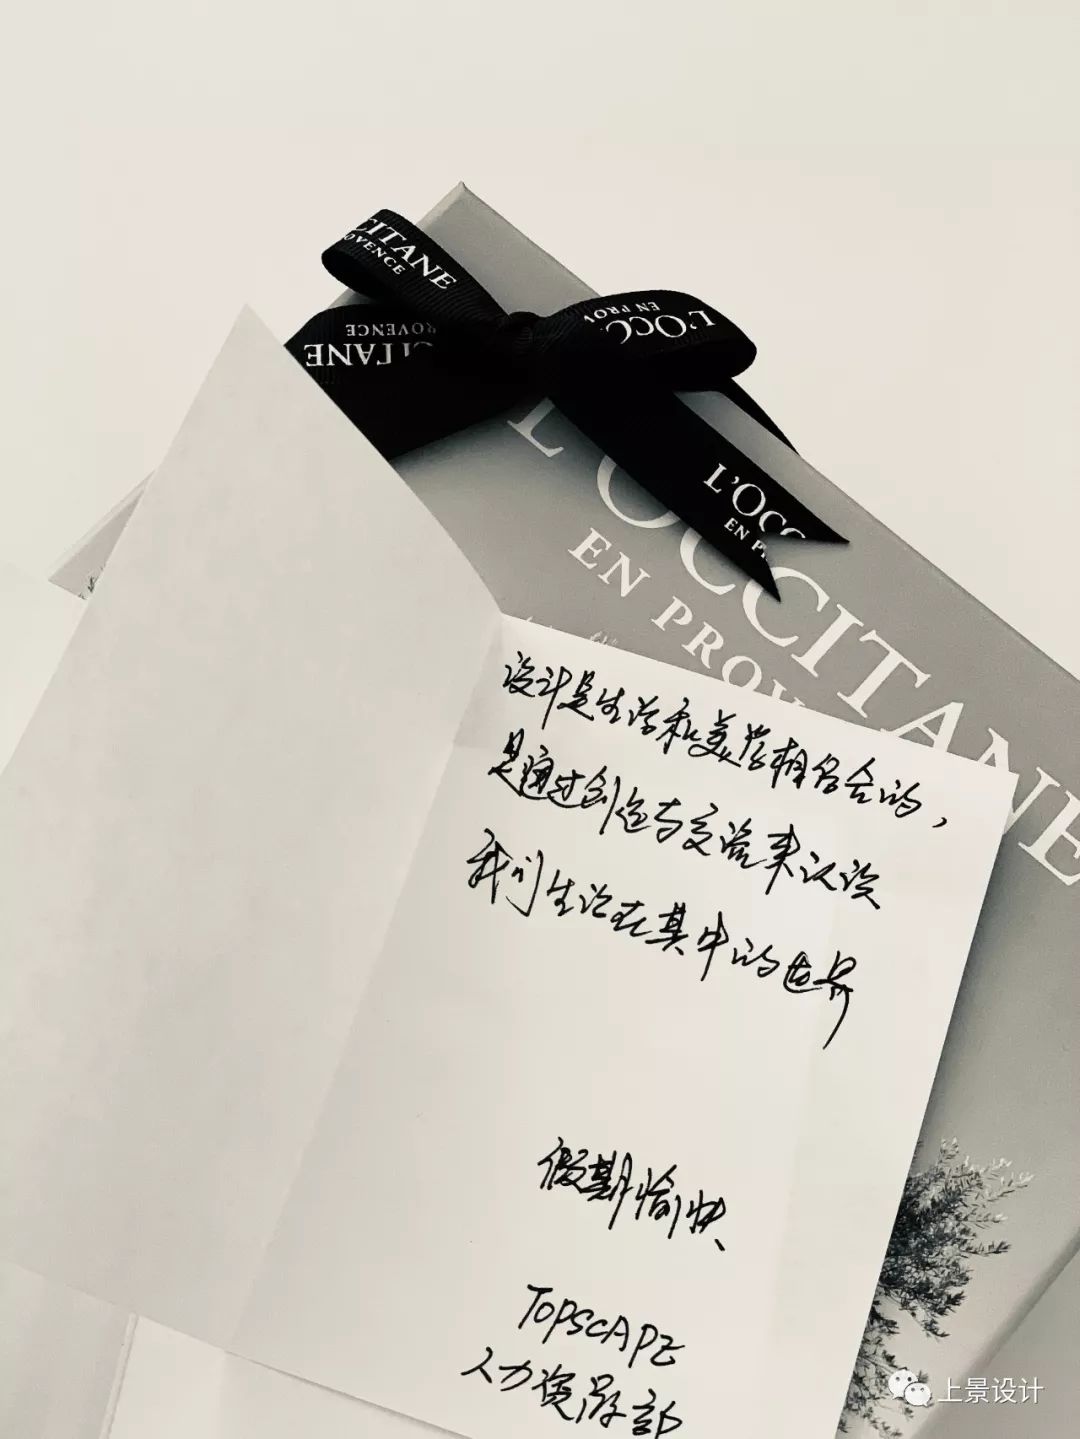 CITANE
OVENCE
ROVENCE
CITANE
L'OCC
EN PROV
L'OCC
EN P
L'OCCITANE
EN PROV
设计是生活和美学相结合的，
是通过创造与交流来认识
我们生活在其中的世界
假期愉快
TOPSCAPE
人力资源部
上景设计